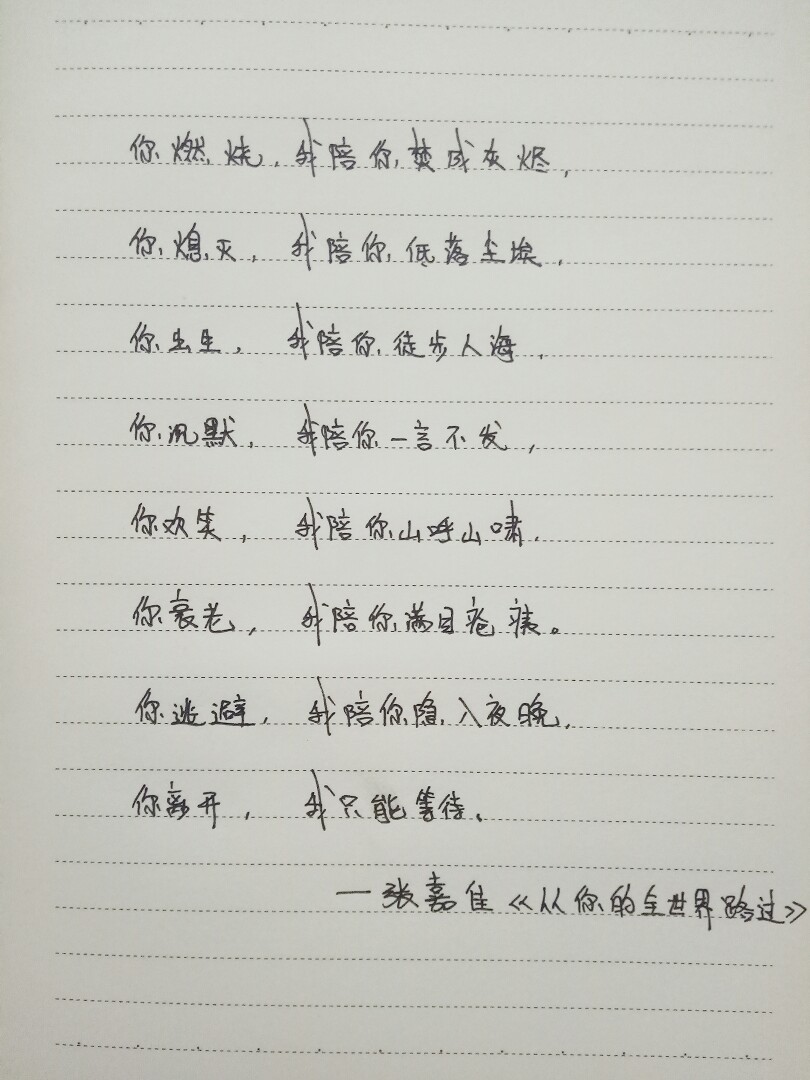 你燃烧，我陪你焚成灰烬，
你熄灭，我陪你低落尘埃，
你出生，我陪你徒步人海，
你沉默，我陪你一言不发，
你欢笑，我陪你山呼山啸.
你衰老，我陪你满目疮痍。
你逃避，我陪你隐入夜晚，
你离开，我只能等待、
—张嘉佳《从你的全世界路过》